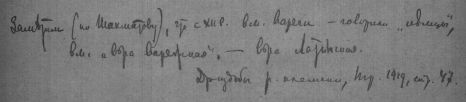 Заметим (по Шахматову), что с XII в. вм. Варяги – говорили „немцы",
вм. „вера варяжская", – вера Латинская.
Др. судьбы р. племени, Птр. 1919, стр. 47.